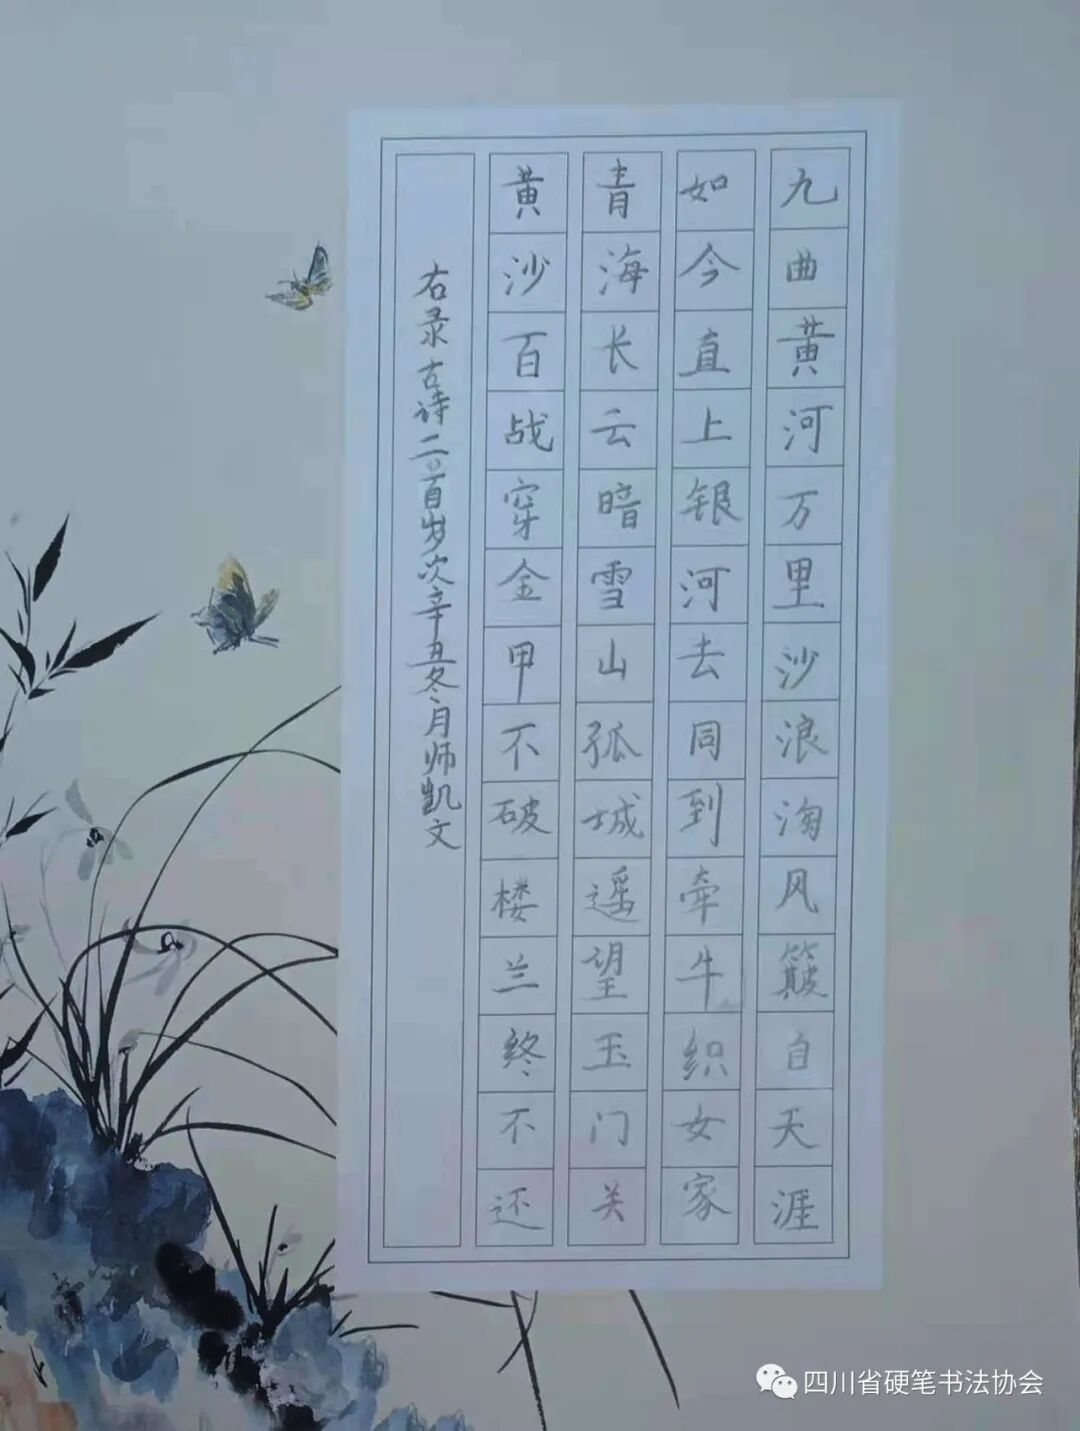 九曲黄河万里沙浪淘风簸自天涯
如今直上银河去同到牵牛织女家
青海长云暗雪山孤城遥望玉门关
黄沙百战穿金甲不破楼兰终不还
右录古诗二〇百岁次辛丑冬月师凯文
四川省硬笔书法协会